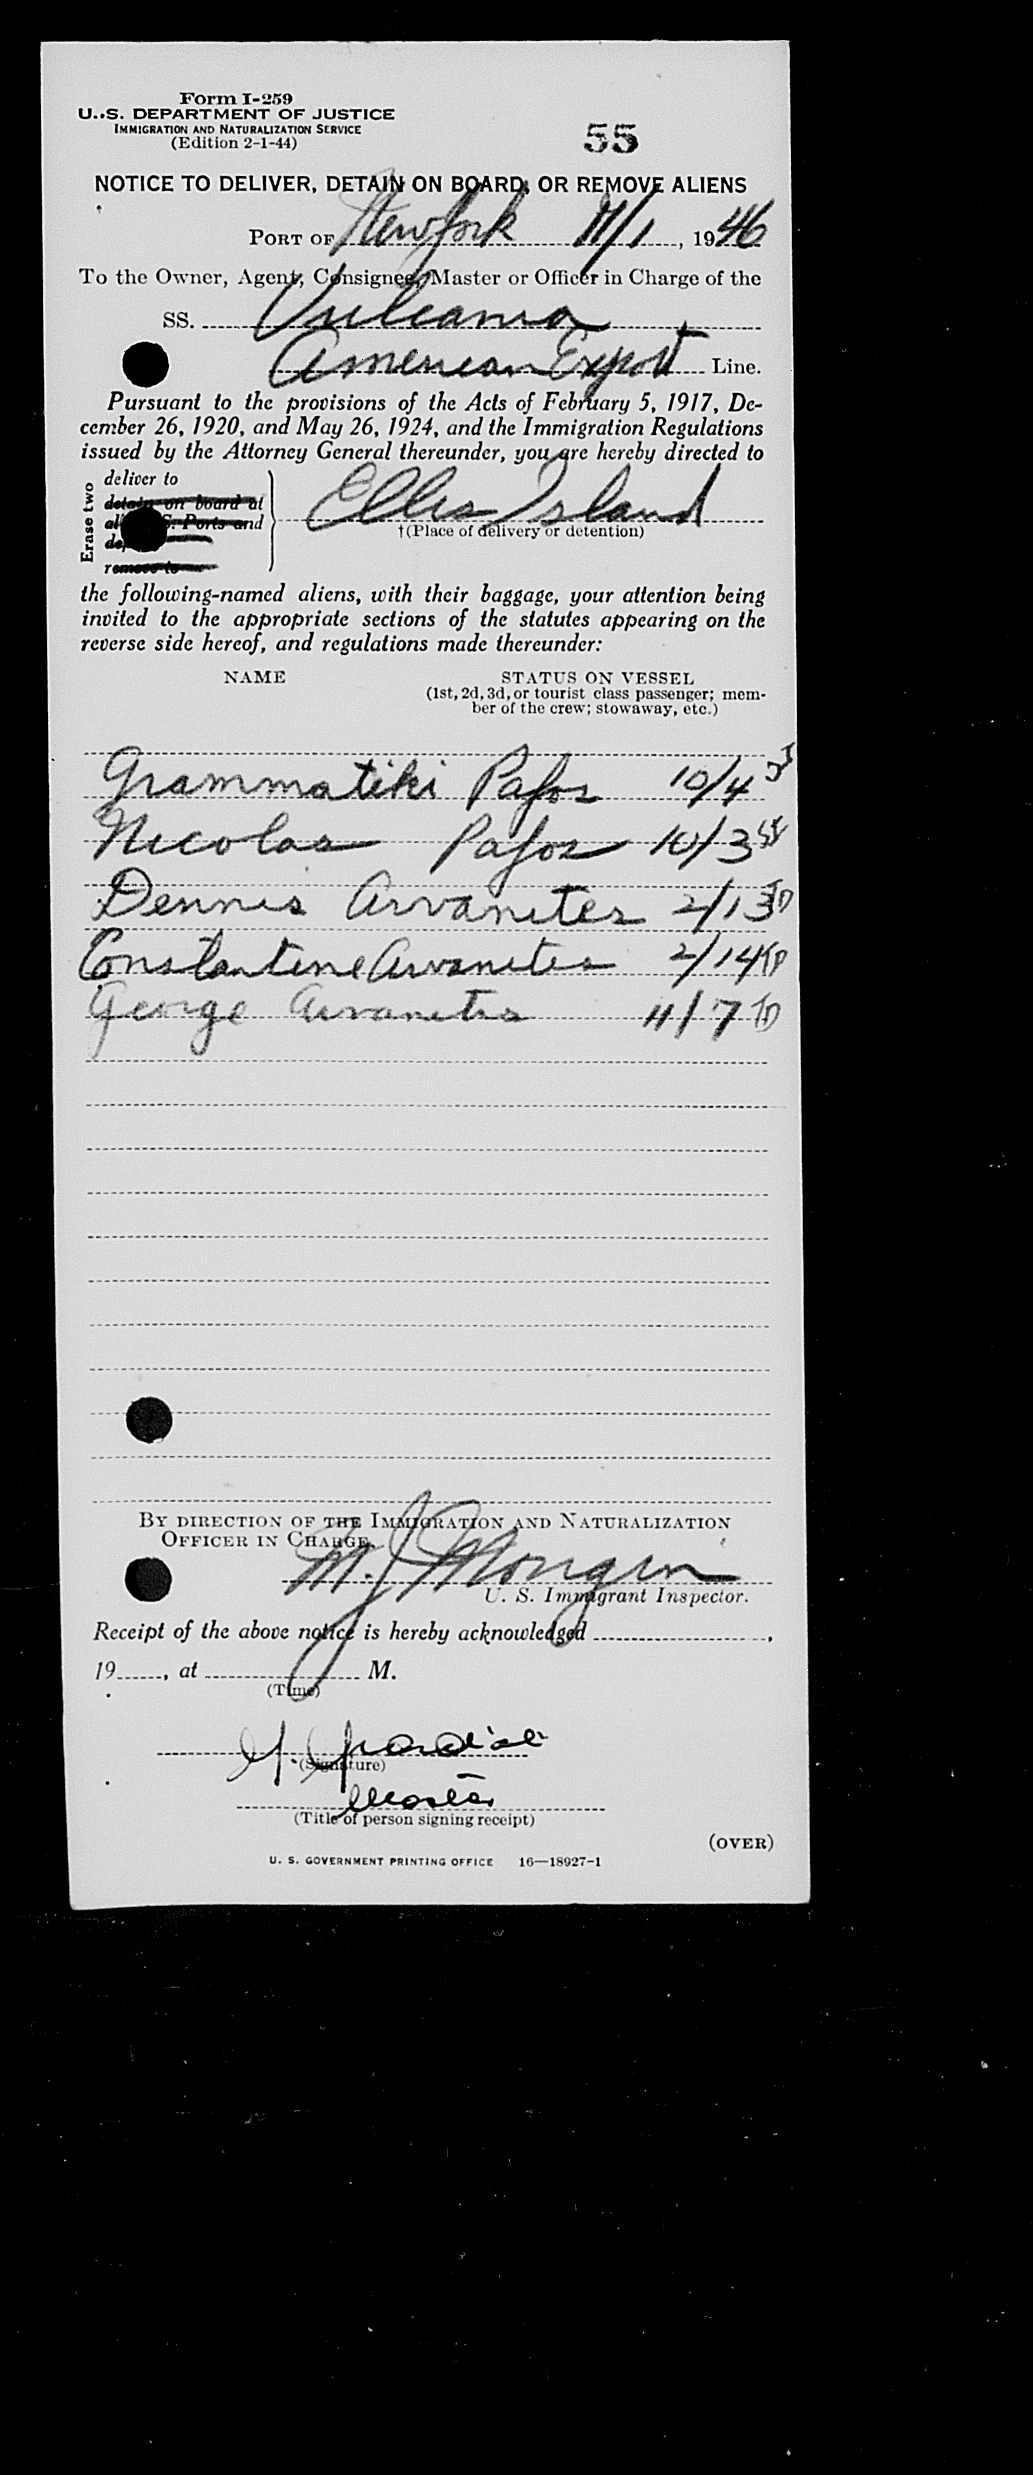 Form I-259
U. S. DEPARTMENT OF JUSTICE
IMMIGRATION AND NATURALIZATION SERVICE
(Edition 2-1-44)
55
NOTICE TO DELIVER, DETAIN ON BOARD, OR REMOVE ALIENS
PORT OF New York 11/1, 1946
To the Owner, Agent, Consignee, Master or Officer in Charge of the
SS. Vulcania
American Export Line.
Pursuant to the provisions of the Acts of February 5, 1917, De-
cember 26, 1920, and May 26, 1924, and the Immigration Regulations
issued by the Attorney General thereunder, you are hereby directed to
Erase two
deliver to
detain on board at
all S. Ports and
remove to
Ellis Island
†(Place of delivery or detention)
the following-named aliens, with their baggage, your attention being
invited to the appropriate sections of the statutes appearing on the
reverse side hereof, and regulations made thereunder:
NAME STATUS ON VESSEL
(1st, 2d, 3d, or tourist class passenger; mem-
ber of the crew; stowaway, etc.)
Grammatiki Pafos 10/4
Nicolas Pafos 10/3
Dennis Arvanites 2/13 TD
Constantine Arvanites 2/14 TD
George Arvanitis 11/7 TD
BY DIRECTION OF THE IMMIGRATION AND NATURALIZATION
OFFICER IN CHARGE.
M. J. Mongin
U. S. Immigrant Inspector.
Receipt of the above notice is hereby acknowledged ,
19 , at M.
(Time)
(Signature)
Master
(Title of person signing receipt)
(OVER)
U. S. GOVERNMENT PRINTING OFFICE 16—18927-1